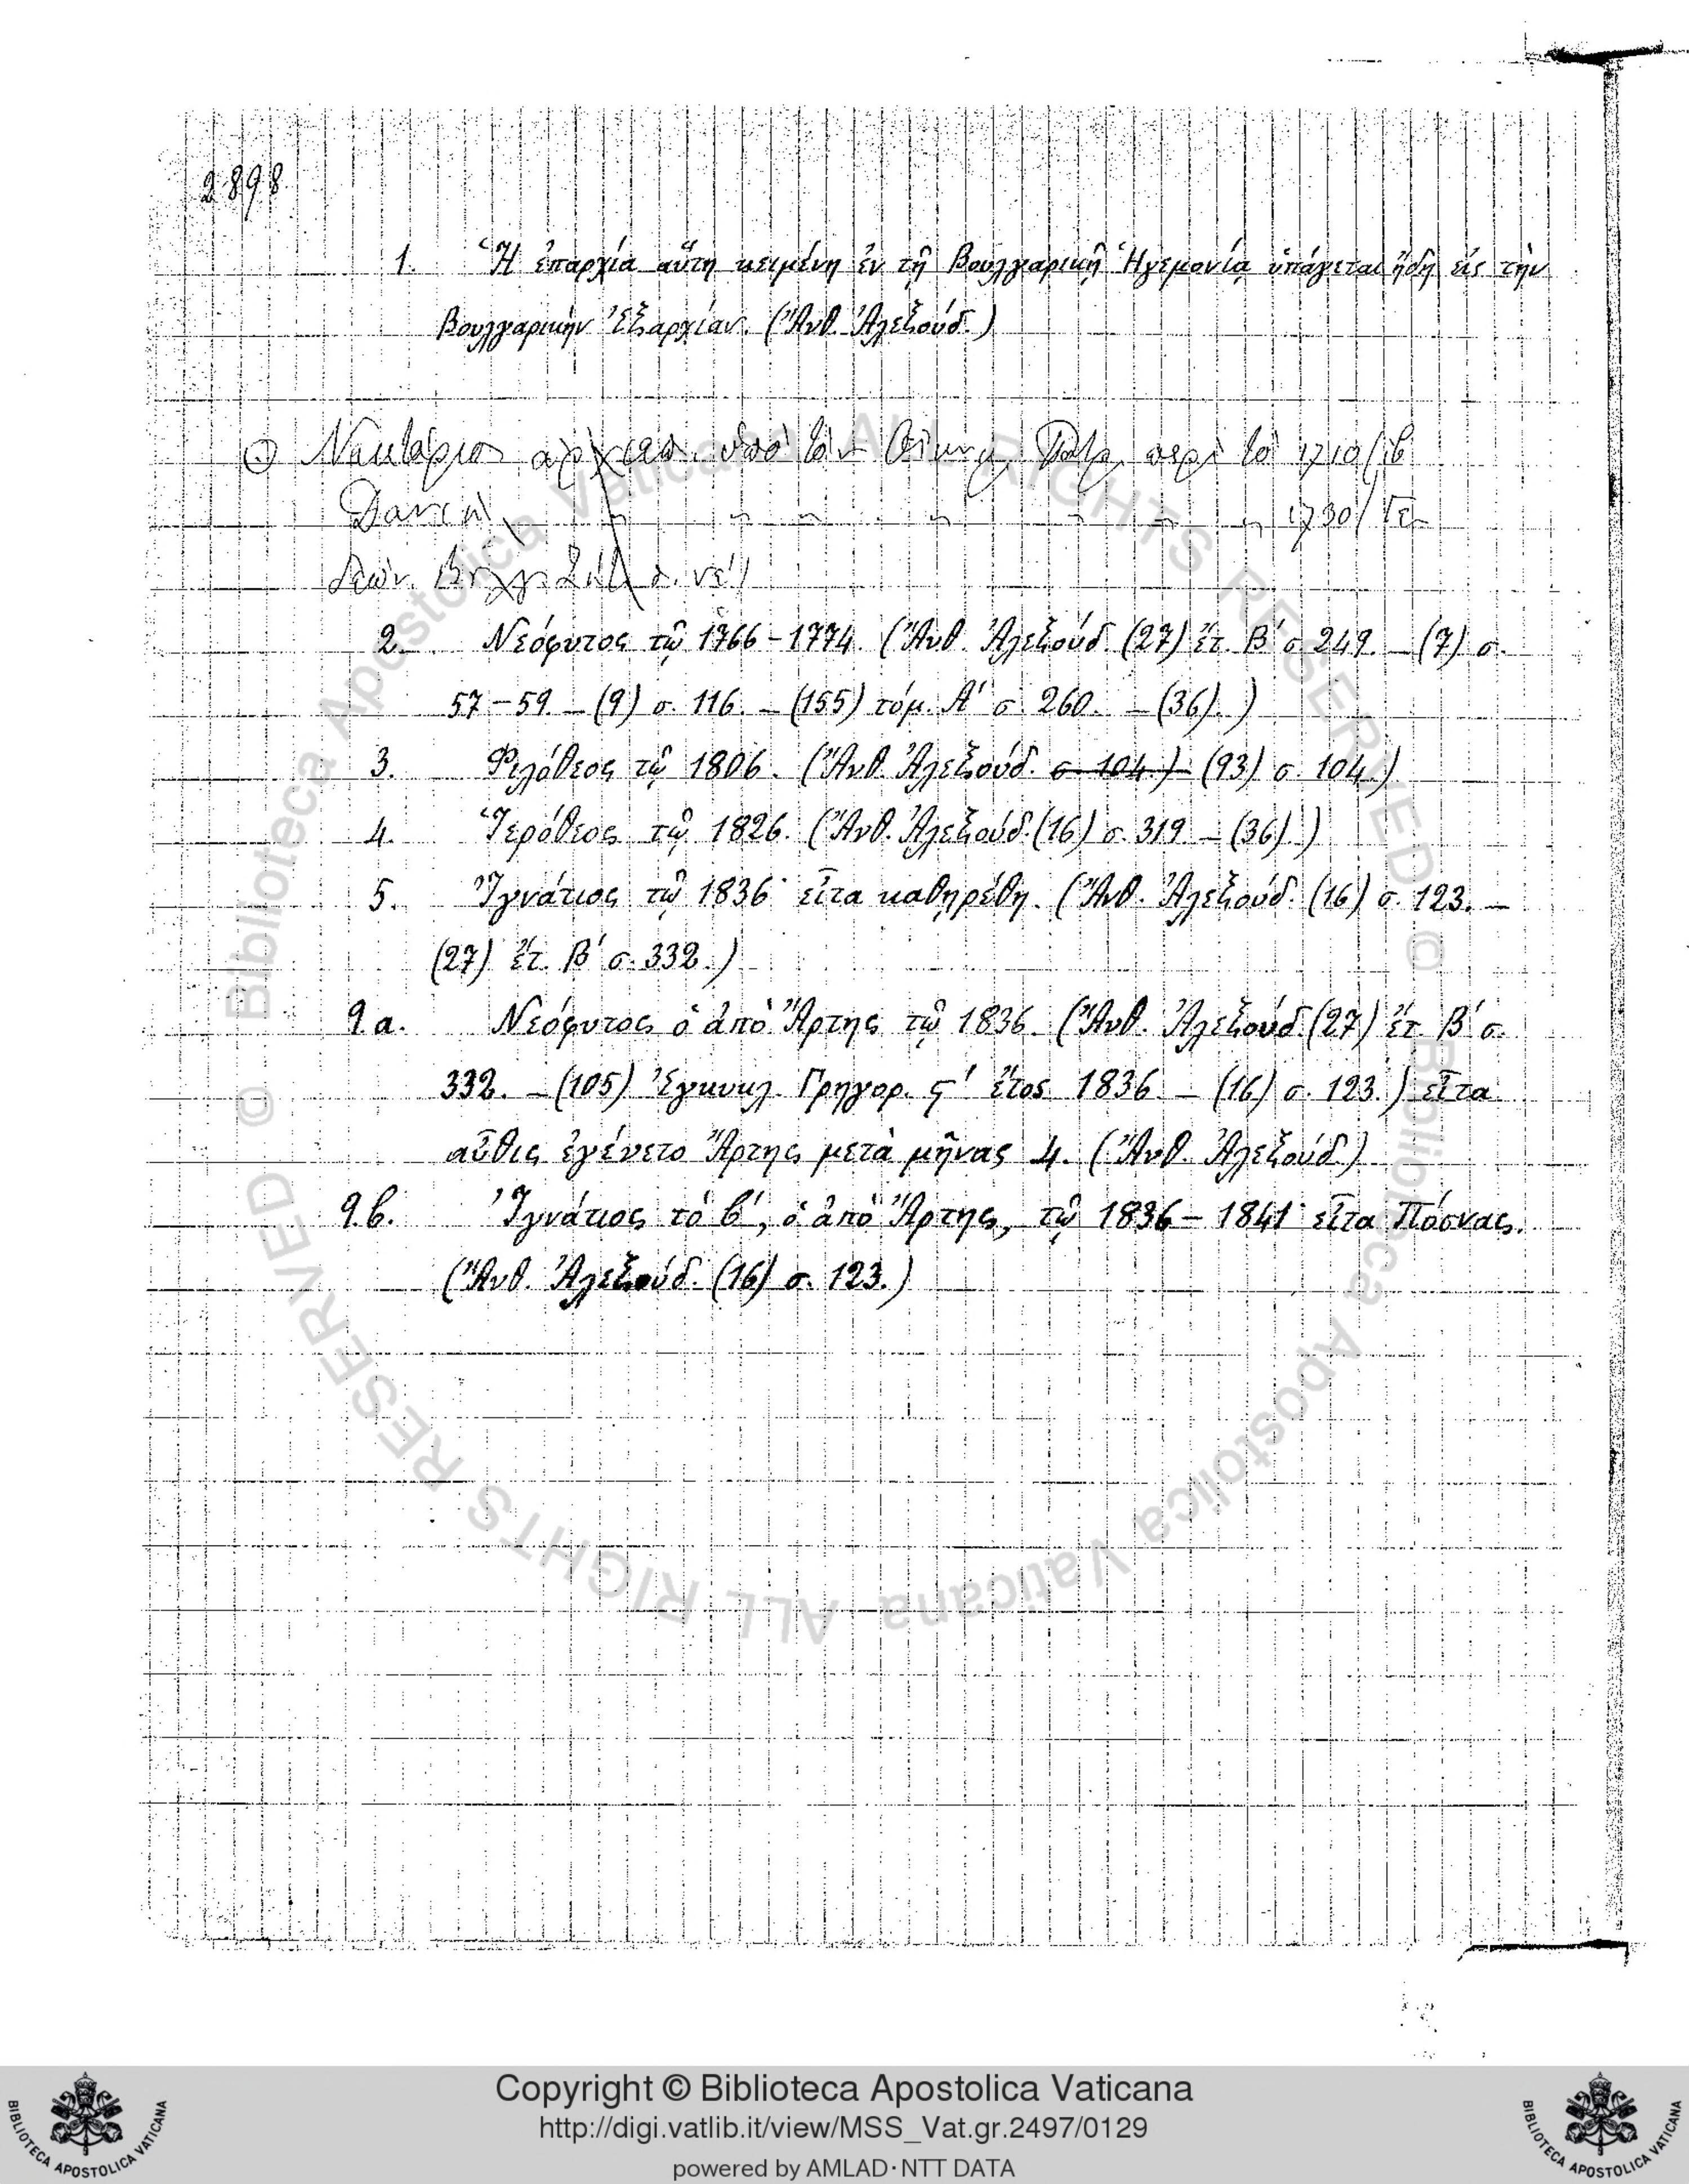 2898
1. Ἡ ἐπαρχία αὕτη κειμένη ἐν τῇ Βουλγαρικῇ Ἡγεμονίᾳ ὑπάγεται ἤδη εἰς τὴν
Βουλγαρικὴν Ἐξαρχίαν. (Ἄνθ. Ἀλεξούδ.)
Νεκτάριος ὑπὸ τὸν Οἰκουμ. Πατρ. περὶ τὸ 1710
Δανιὴλ " " " " " " " 1730
2. Νεόφυτος τῷ 1766 – 1774. (Ἄνθ. Ἀλεξούδ. (27) ἔτ. Β΄ σ. 249. – (7) σ.
57 – 59. – (9) σ. 116. – (155) τόμ. Α΄ σ. 260. – (36).)
3. Φιλόθεος τῷ 1806. (Ἄνθ. Ἀλεξούδ. σ. 104.) (93) σ. 104.)
4. Ἱερόθεος τῷ 1826. (Ἄνθ. Ἀλεξούδ. (16) σ. 319. – (36).)
5. Ἰγνάτιος τῷ 1836· εἶτα καθῃρέθη. (Ἄνθ. Ἀλεξούδ. (16) σ. 123. –
(27) ἔτ. Β΄ σ. 332.)
9a. Νεόφυτος ὁ ἀπὸ Ἄρτης τῷ 1836. (Ἄνθ. Ἀλεξούδ. (27) ἔτ. Β΄ σ.
332. – (105) Ἐγκυκλ. Γρηγορ. ϛ΄ ἔτος 1836. – (16) σ. 123.) εἶτα
αὖθις ἐγένετο Ἄρτης μετὰ μῆνας 4. (Ἄνθ. Ἀλεξούδ.)
9.b. Ἰγνάτιος τὸ β΄, ὁ ἀπὸ Ἄρτης, τῷ 1836 – 1841· εἶτα Πόσνας.
(Ἄνθ. Ἀλεξούδ. (16) σ. 123.)
© Biblioteca Apostolica Vaticana ALL RIGHTS RESERVED © Biblioteca Apostolica Vaticana ALL RIGHTS RESERVED
Copyright © Biblioteca Apostolica Vaticana
http://digi.vatlib.it/view/MSS_Vat.gr.2497/0129
powered by AMLAD·NTT DATA
BIBLIOTECA APOSTOLICA VATICANA
BIBLIOTECA APOSTOLICA VATICANA